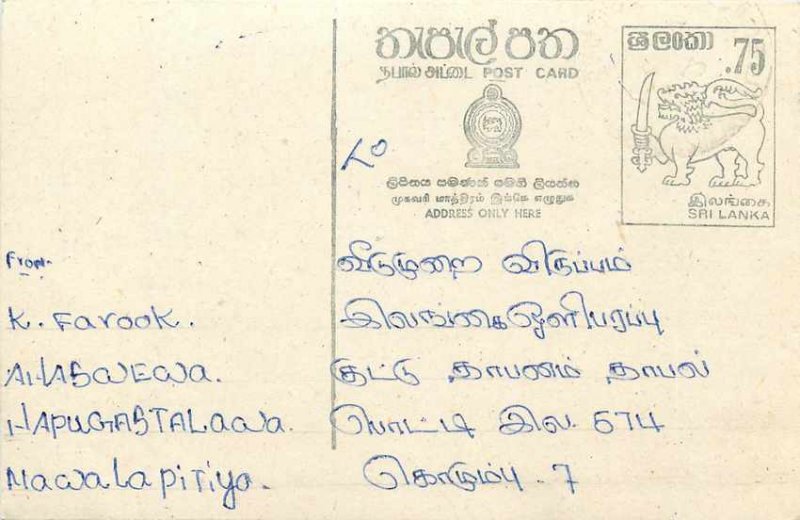 තැපැල් පත
தபால் அட்டை POST CARD
ශ්‍රී ලංකා
.75
ලිපිනය පමණක් මෙහි ලියන්න
முகவரி மாத்திரம் இங்கே எழுதுக
ADDRESS ONLY HERE
இலங்கை
SRI LANKA
From-
K. Farook.
AHASWEWa.
HAPUGASTALawa.
Nawalapitiya.
To
விடுமுறை விருப்பம்
இலங்கை ஒளிபரப்பு
கூட்டு தாபனம் தாபல்
பொட்டி இல. 574
கொழும்பு .7